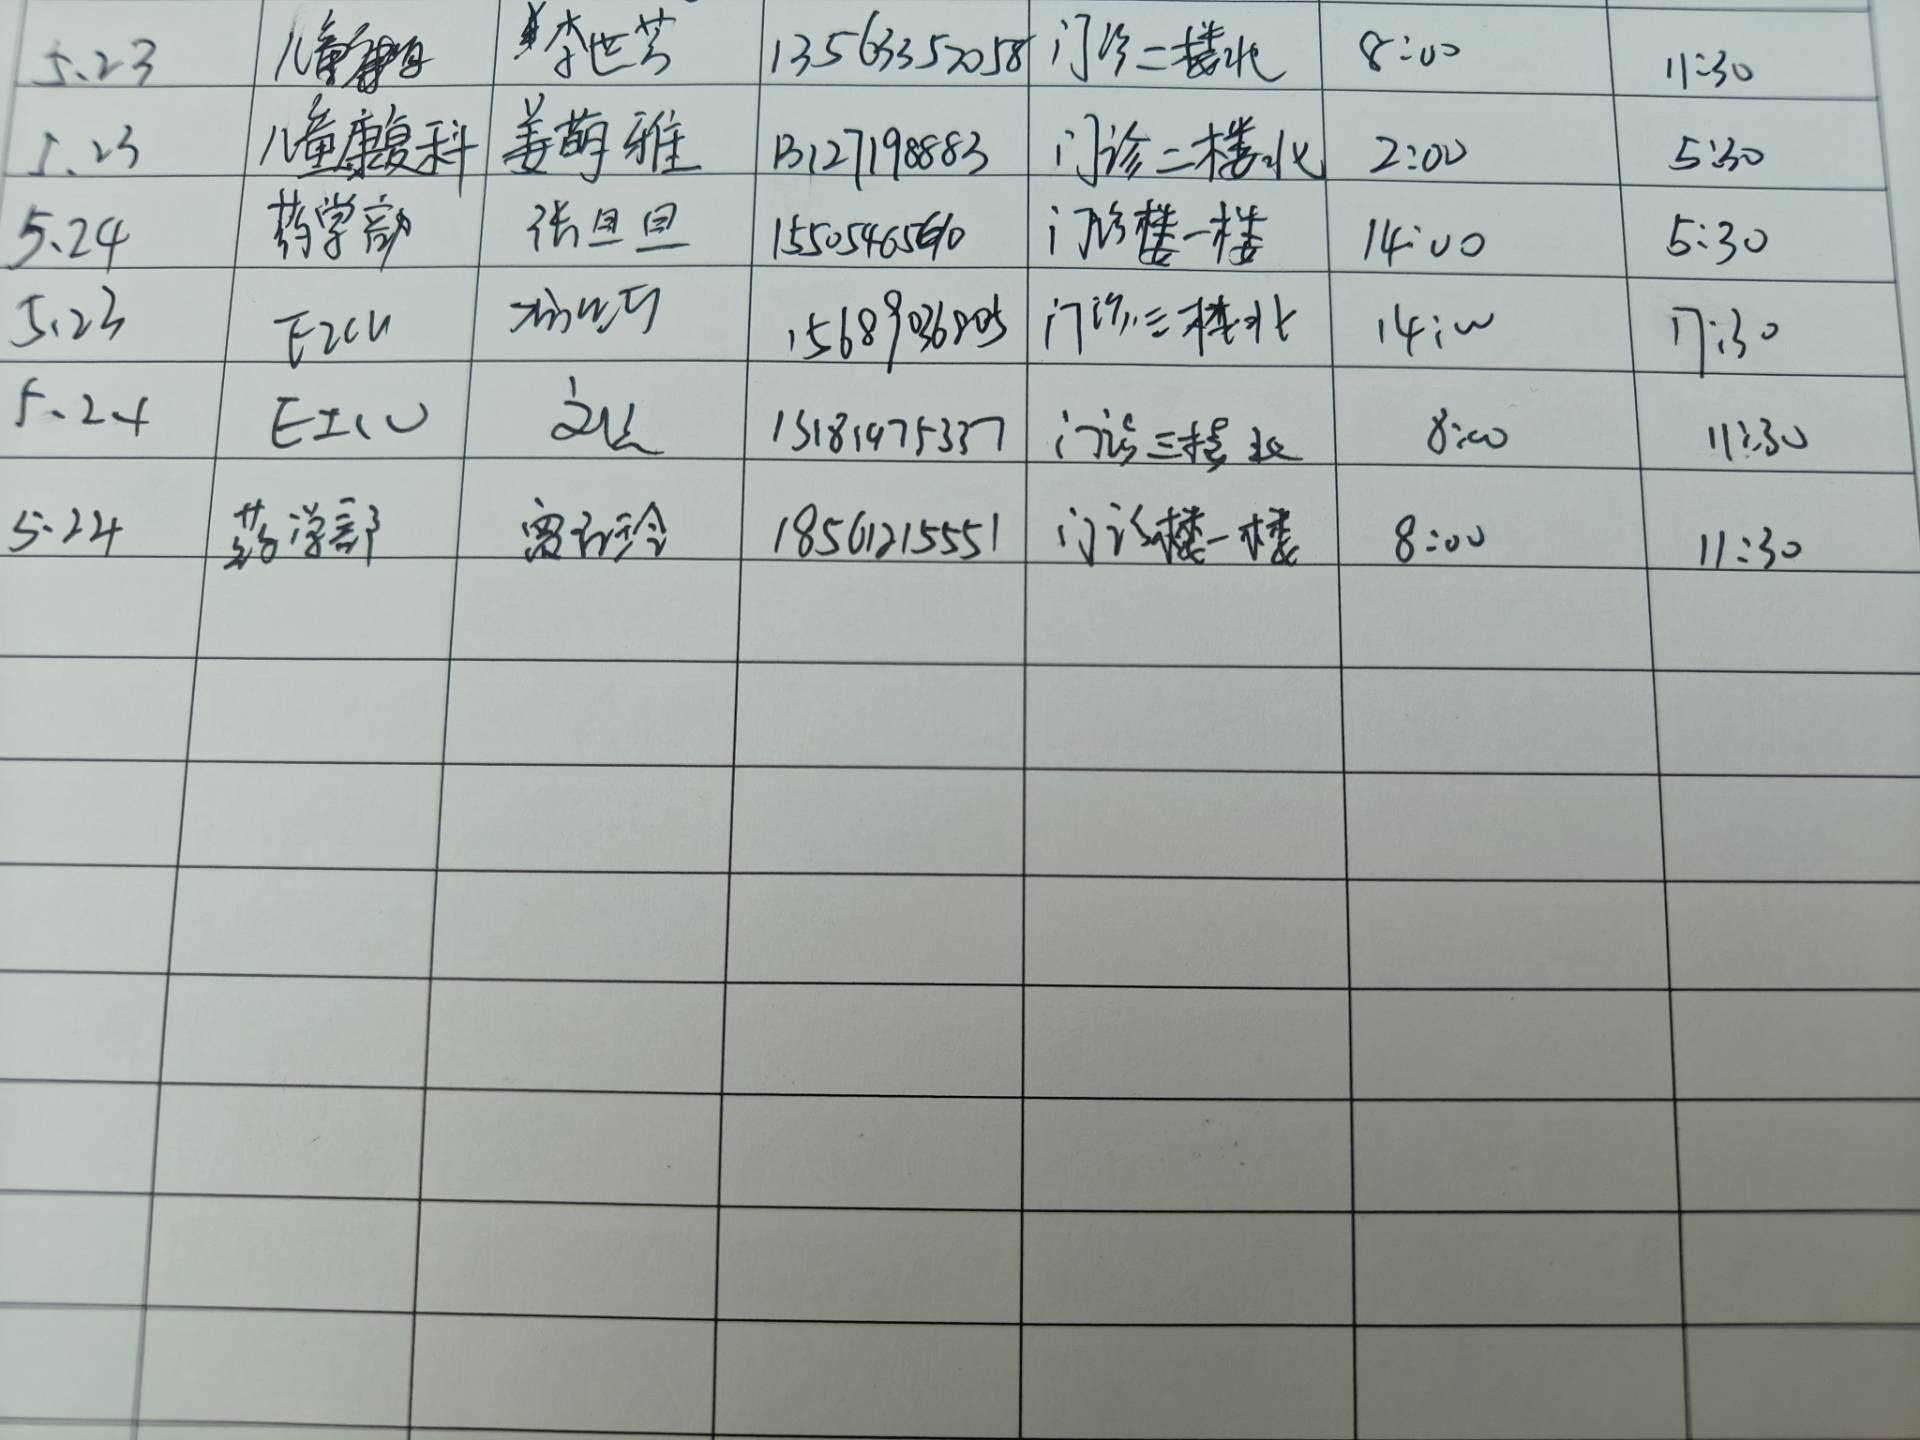 5.23 儿童康复 李世芳 13563352058 门诊二楼北 8:00 11:30
5.23 儿童康复科 姜萌雅 13127198883 门诊二楼北 2:00 5:30
5.24 药学部 张旦旦 门诊楼一楼 14:00 5:30
5.23 EICU 门诊三楼北 14:00 17:30
5.24 EICU 门诊三楼北 8:00 11:30
5.24 药学部 18561215551 门诊楼一楼 8:00 11:30